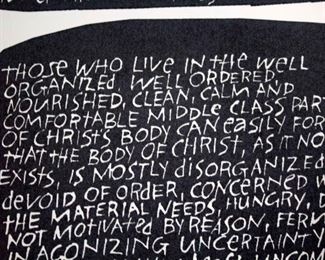 THOSE WHO LIVE IN THE WELL
ORGANIZED WELL ORDERED,
NOURISHED, CLEAN, CALM AND
COMFORTABLE MIDDLE CLASS PAR
OF CHRIST'S BODY CAN EASILY FOR
THAT THE BODY OF CHRIST, AS IT NO
EXISTS, IS MOSTLY DISORGANIZED
DEVOID OF ORDER, CONCERNED W
THE MATERIAL NEEDS, HUNGRY, D
NOT MOTIVATED BY REASON, FERV
IN AGONIZING UNCERTAINTY